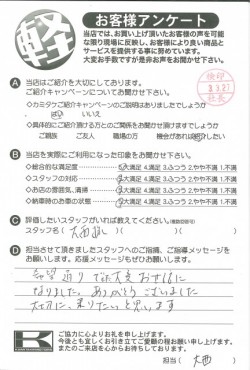 軽
お客様アンケート
当店では、お買い上げ頂いたお客様の声を可能
な限り現場に反映し、お客様により良い商品と
サービスを提供する事に努めています。
大変お手数ですが是非お声をお聞かせ下さい。
A 当店はご紹介を大切にしております。
ご紹介キャンペーンについてお聞かせ下さい。
検印
社長
◇カミタケご紹介キャンペーンのご説明はありましたでしょうか
はい いいえ
◇具体的にご紹介頂ける方とのご関係をお聞かせ頂けますでしょうか
ご親族 ご友人 職場の方 機会があれば
B 当店を実際にご利用になった印象をお聞かせ下さい。
◇総合的な満足度 5大満足 4.満足 3.ふつう 2.やや不満 1.不満
◇スタッフの対応 5大満足 4.満足 3.ふつう 2.やや不満 1.不満
◇お店の雰囲気、清掃 5大満足 4.満足 3.ふつう 2.やや不満 1.不満
◇納車時のお車の状態 5大満足 4.満足 3.ふつう 2.やや不満 1.不満
C 評価したいスタッフがいれば教えてください。(複数回答可)
スタッフ名( 大西 )
D 担当させて頂きましたスタッフへのご指摘、ご指導メッセージを
お願いします。応援メッセージもぜひお願いします。
希望通りで大変お世話に
なりました。ありがとうございました
大切に、乗りたいと思います
K
ご協力に心よりお礼を申し上げます。
今後とも宜しくお引き立てご愛顧の程お願い申し上げます。
またのご来店を心からお待ちしております。
担当( 大西 )